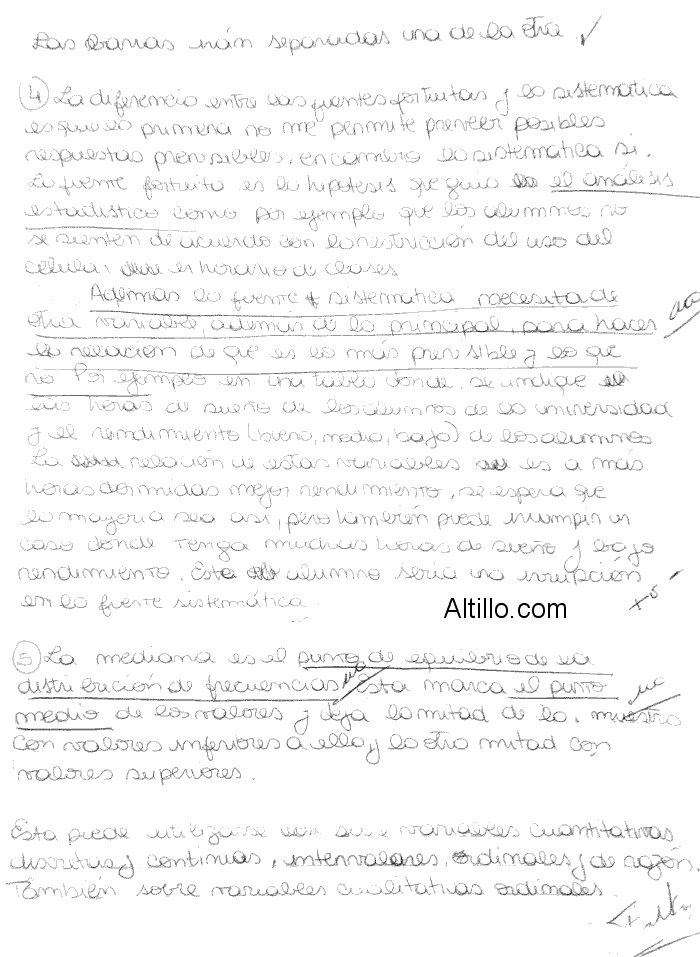 Las barras irán separadas una de la otra ✓
④ La diferencia entre las fuentes fortuitas y la sistemática
es que la primera no me permite preveer posibles
respuestas previsibles, en cambio la sistemática si.
La fuente fortuita es la hipótesis que guia el análisis
estadístico como por ejemplo que los alumnos no
se sienten de acuerdo con la restricción del uso del
celular en horario de clases
Además la fuente sistematica necesita de
otra variable, además de la principal, para hacer
la relación de que es lo más previsible y lo que
no Por ejemplo en una tabla donde se indique
las horas de sueño de los alumnos de la universidad
y el rendimiento (bueno, medio, bajo) de los alumnos
La relación de estas variables es a más
horas dormidas mejor rendimiento, se espera que
la mayoria sea asi, pero también puede irrumpir un
caso donde tenga muchas horas de sueño y bajo
rendimiento. Este alumno seria una irrupción
en la fuente sistemática.
Altillo.com
⑤ La mediana es el punto de equilibrio de la
distribución de frecuencias. Esta marca el punto
medio de los valores y deja la mitad de la muestra
con valores inferiores a ella y la otra mitad con
valores superiores.
Esta puede utilizarse variables cuantitativas
discretas y continuas, intervalares, ordinales y de razón.
También sobre variables cualitativas ordinales.